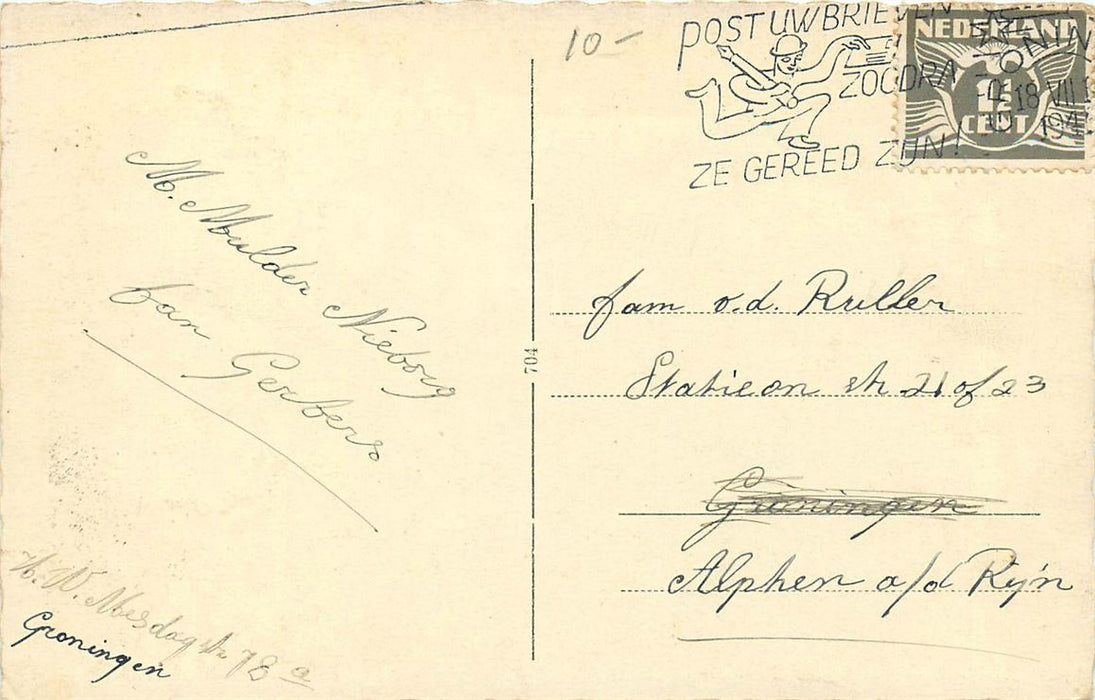 10-
POST UW BRIEVEN
ZOODRA
ZE GEREED ZIJN!
NEDERLAND
CENT
GRONINGEN
18 VII
194
M. Mulder Nieborg
fam Gerbers
H. W. Mesdagstr 78 a
Groningen
704
fam v.d. Ruller
Statieon str 21 of 23
Groningen
Alphen a/d Rijn